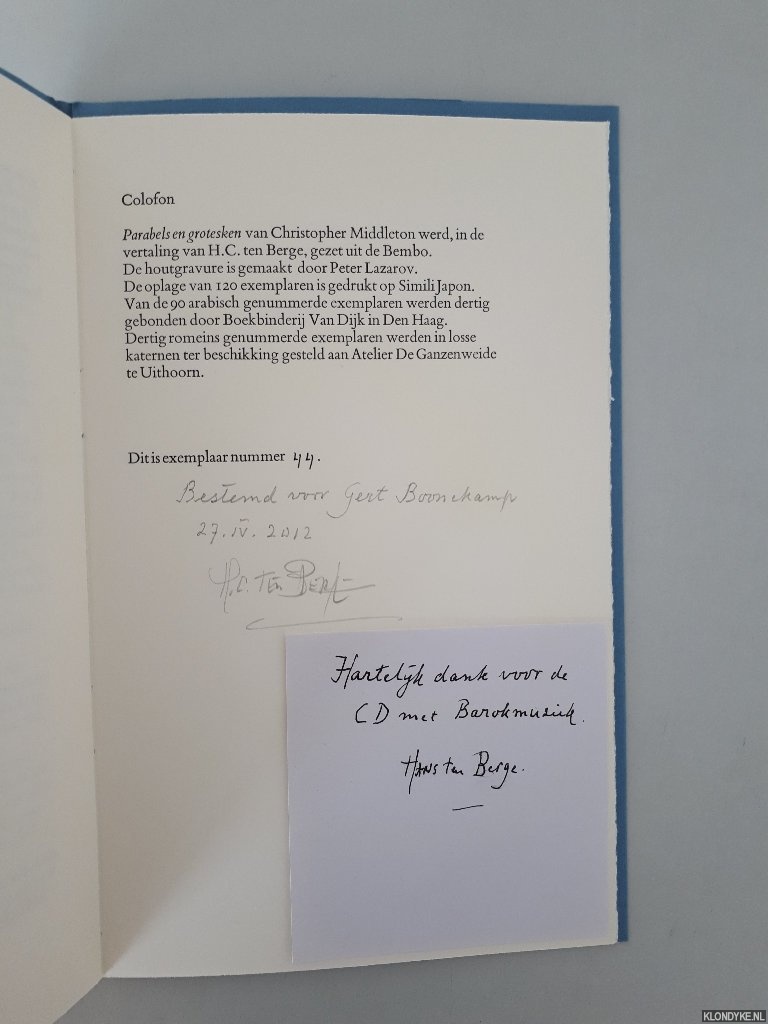 Colofon
Parabels en grotesken van Christopher Middleton werd, in de
vertaling van H.C. ten Berge, gezet uit de Bembo.
De houtgravure is gemaakt door Peter Lazarov.
De oplage van 120 exemplaren is gedrukt op Simili Japon.
Van de 90 arabisch genummerde exemplaren werden dertig
gebonden door Boekbinderij Van Dijk in Den Haag.
Dertig romeins genummerde exemplaren werden in losse
katernen ter beschikking gesteld aan Atelier De Ganzenweide
te Uithoorn.
Dit is exemplaar nummer 44.
Bestemd voor Gert Boonekamp
27.IV.2012
H.C. ten Berge
Hartelijk dank voor de
CD met Barokmuziek.
Hans ten Berge.
KLONDYKE.NL